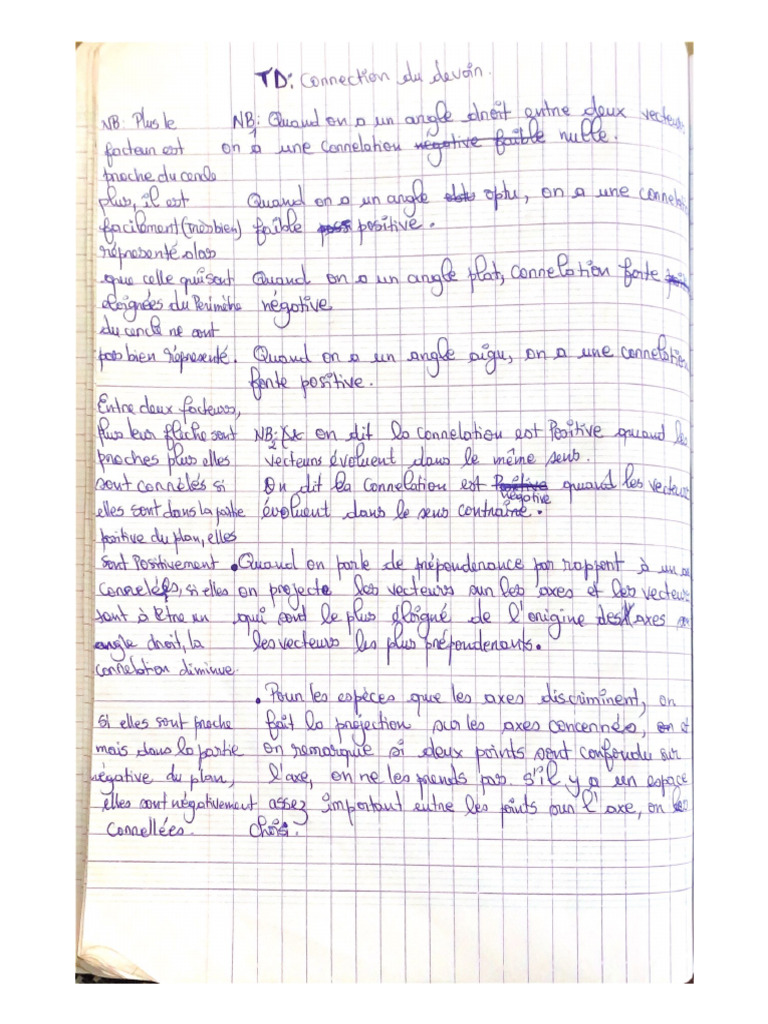 TD: Correction du devoir.
NB: Plus le
facteur est
proche du cercle
plus, il est
facilement (très bien)
représenté alors
que celle qui sont
éloignées du Périmètre
du cercle ne sont
pas bien représenté.
Entre deux facteurs,
plus leur flèche sont
proches plus elles
sont corrélés si
elles sont dans la partie
positive du plan, elles
sont Positivement
correlées, si elles
sont à être en
angle droit, la
correlation diminue.
si elles sont proche
mais dans la partie
négative du plan,
elles sont négativement
correllées.
NB1: Quand on a un angle droit entre deux vecteurs
on a une correlation négative faible nulle.
Quand on a un angle obtu optu, on a une correlation
faible positive.
Quand on a un angle plat, correlation forte
négative
Quand on a un angle aigu, on a une correlation
forte positive.
NB2: on dit la correlation est Positive quand les
vecteurs évoluent dans le même sens.
On dit la correlation est Positive négative quand les vecteurs
évoluent dans le sens contraire.
• Quand on parle de prépondérance par rapport à un
on projecte les vecteurs sur les axes et les vecteurs
qui sont le plus éloigné de l'origine des axes
les vecteurs les plus prépondérants.
• Pour les espèces que les axes discriminent, on
fait la projection sur les axes concernés, et
on remarque si deux points sont confondu sur
l'axe, on ne les prends pas. s'il y a un espace
assez important entre les points sur l'axe, on les
choisi.